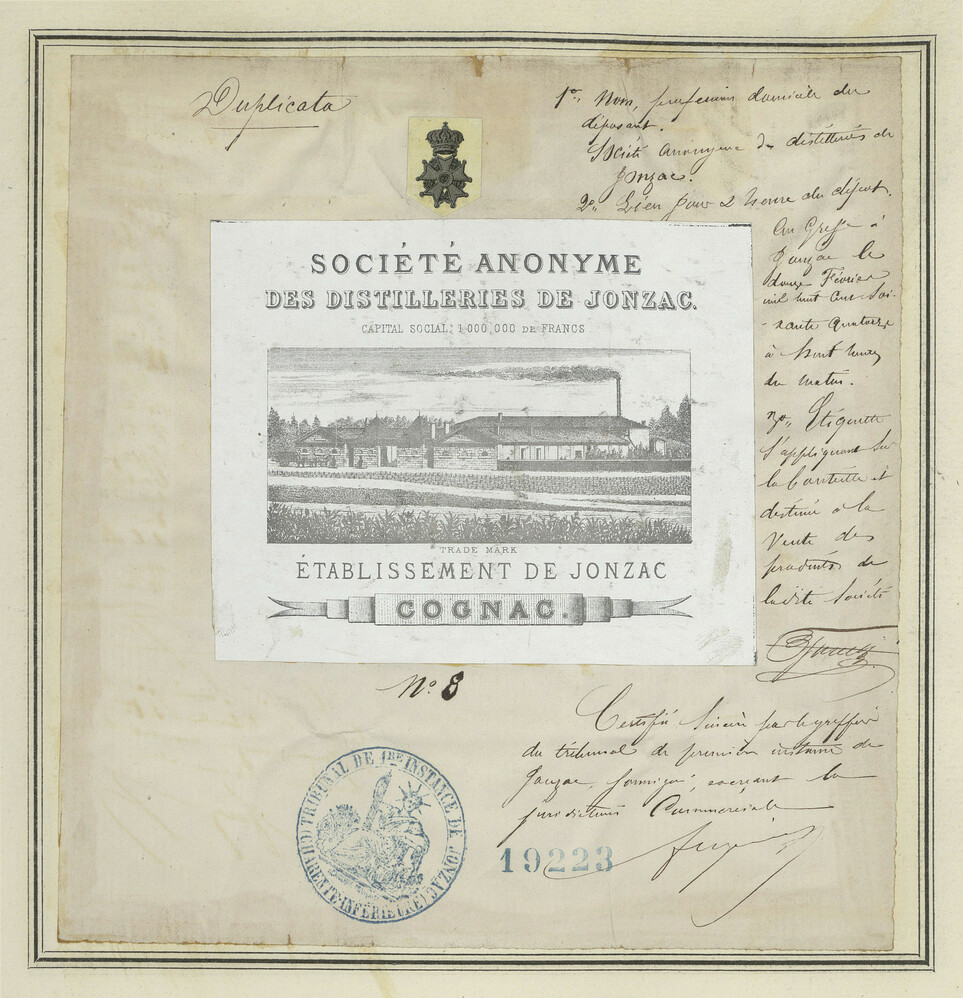 Duplicata
1o,, Nom, profession domicile du
déposant.
Société anonyme des distilleries de
Jonzac.
2o,, Lieu jour & heure du dépôt.
Au Greffe à
Jonzac le
douze Février
mil huit cent soi-
-xante quatorze
à huit heures
du matin.
3o,, Etiquette
s'appliquant sur
la bouteille et
destinée à la
vente des
produits de
ladite Société
SOCIÉTÉ ANONYME
DES DISTILLERIES DE JONZAC.
CAPITAL SOCIAL: 1.000.000 DE FRANCS
TRADE MARK
ÉTABLISSEMENT DE JONZAC
COGNAC.
No 8
Certifié sincère par le greffier
du tribunal de première instance de
Jonzac, soussigné, exerçant la
juridiction Commerciale
19223
TRIBUNAL DE 1RE INSTANCE DE JONZAC
(CHARENTE-INFÉRIEURE)